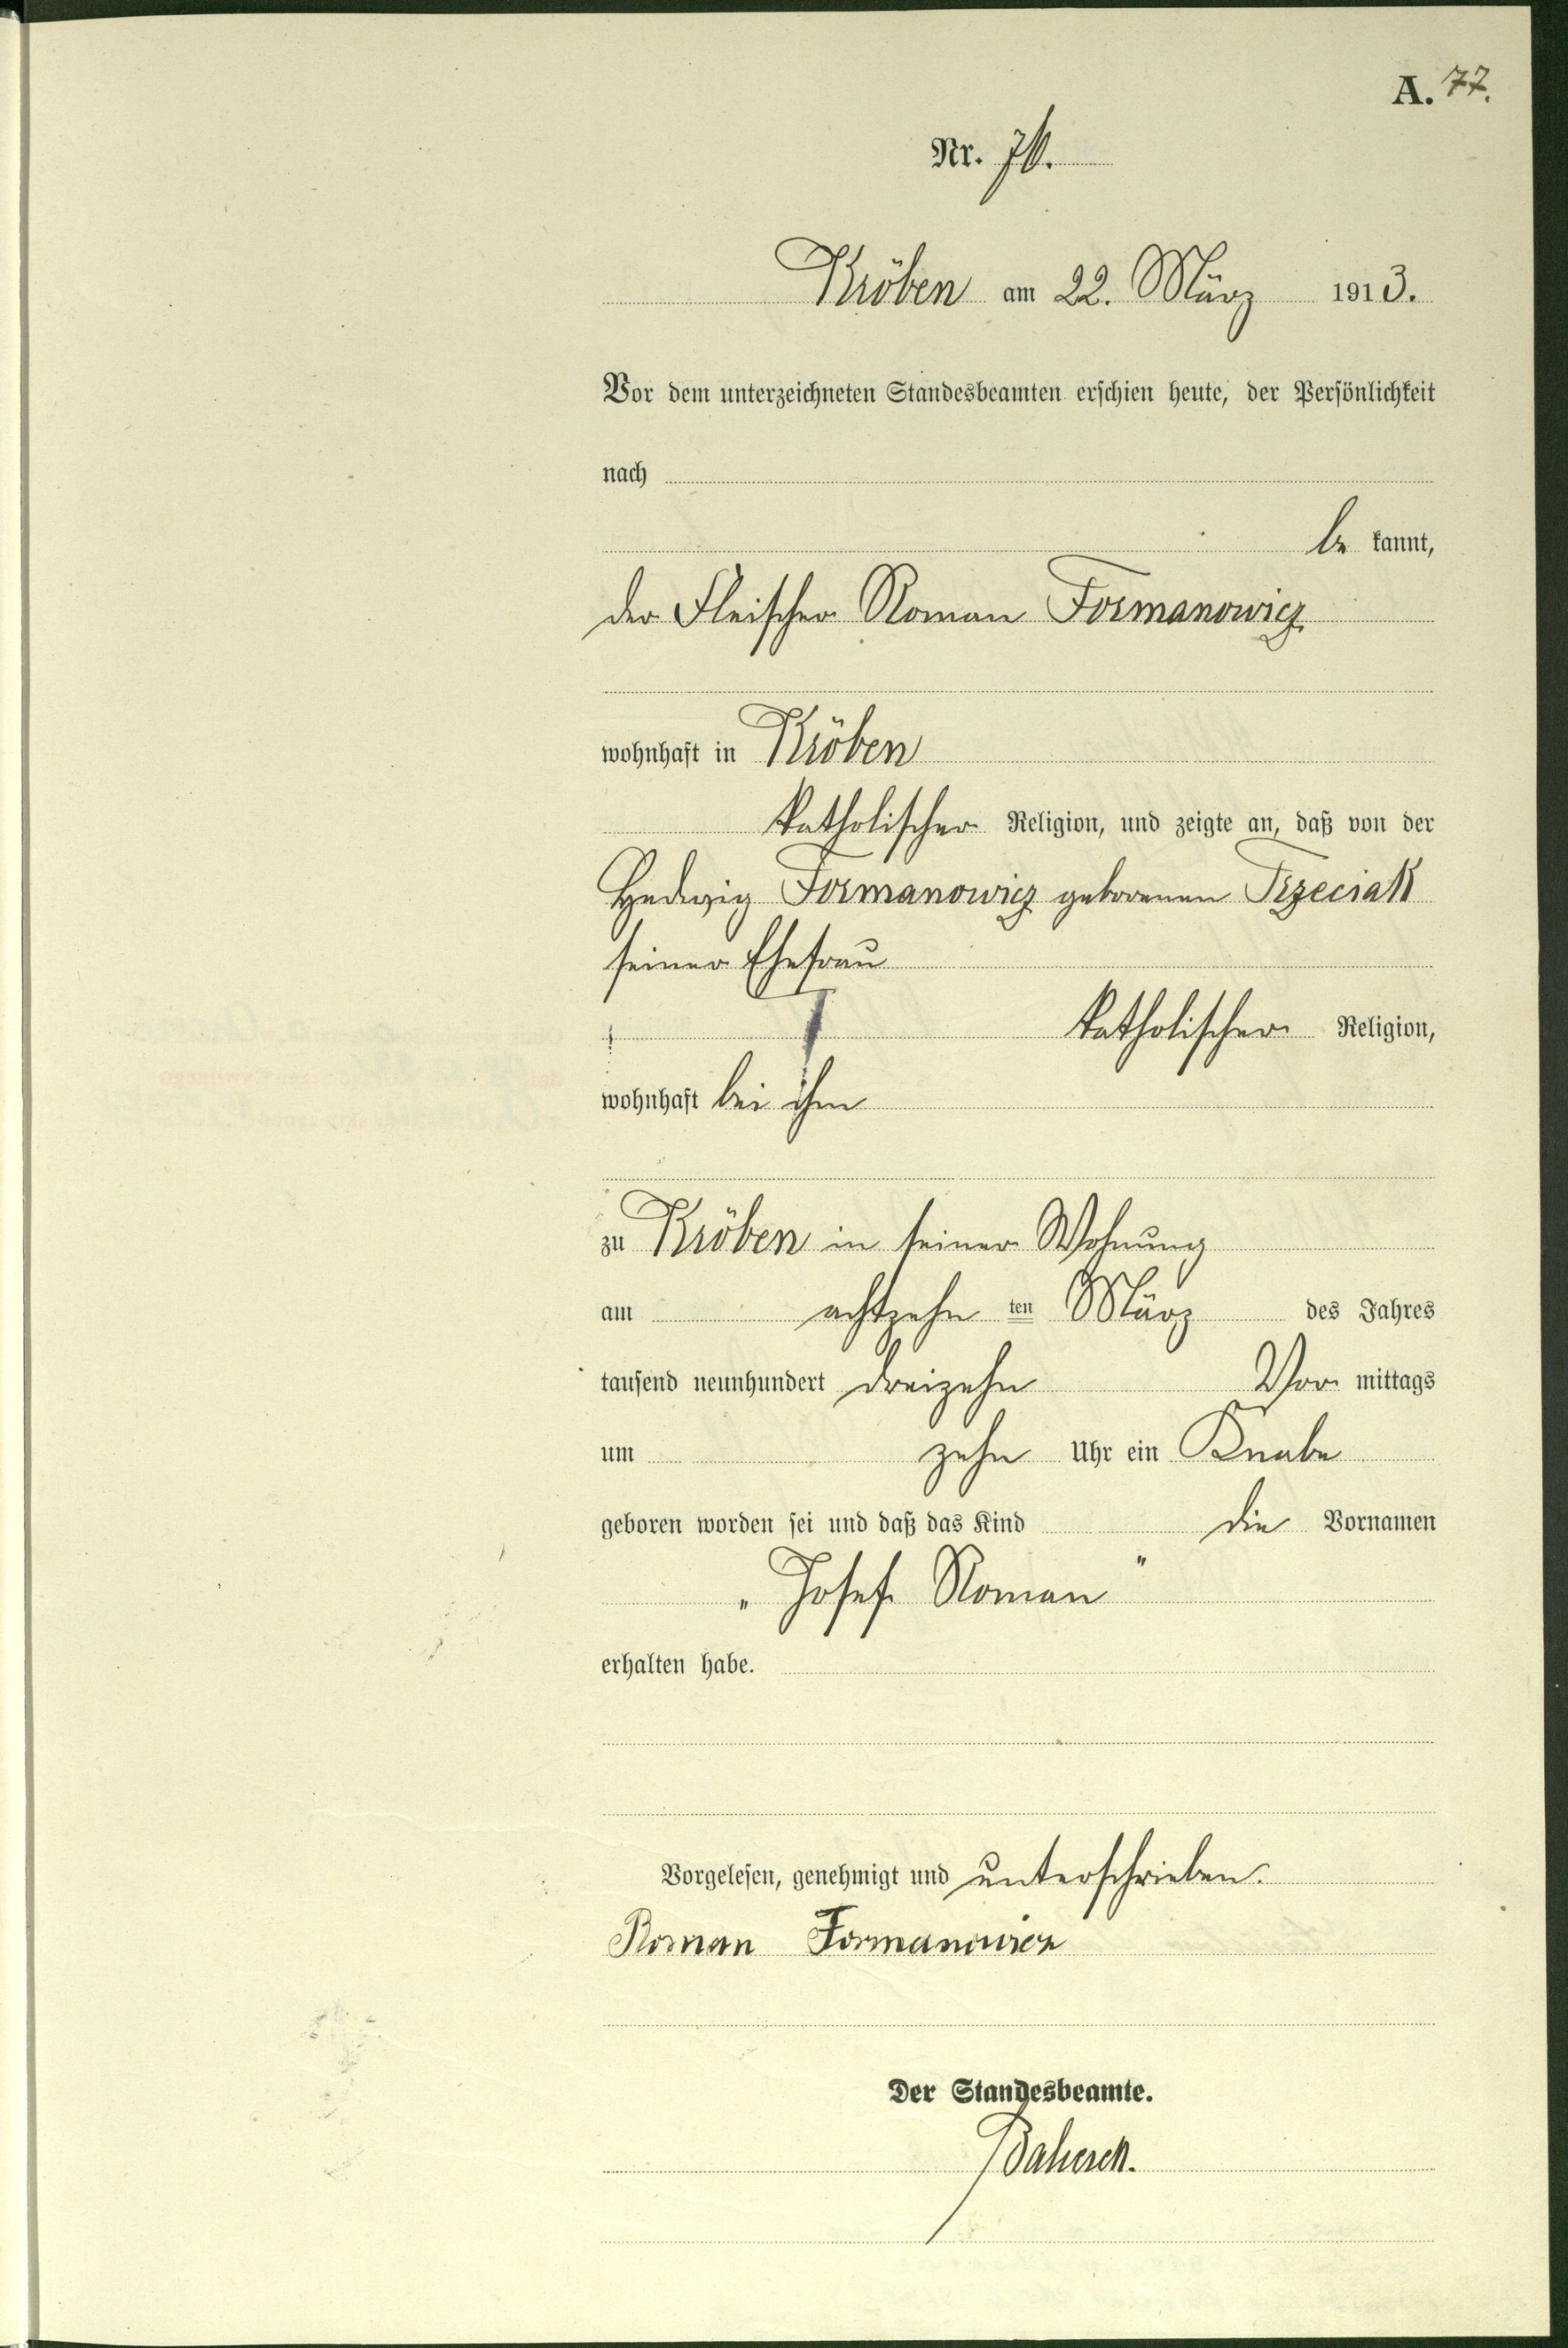 A. 77.
Nr. 76.
Kröben am 22. März 1913.
Vor dem unterzeichneten Standesbeamten erschien heute, der Persönlichkeit
nach
be kannt,
der Fleischer Roman Formanowicz
wohnhaft in Kröben
katholischer Religion, und zeigte an, daß von der
Hedwig Formanowicz geborenen Trzeciak
seiner Ehefrau
katholischer Religion,
wohnhaft bei ihm
zu Kröben in seiner Wohnung
am achtzehn ten März des Jahres
tausend neunhundert dreizehn Vor mittags
um zehn Uhr ein Knabe
geboren worden sei und daß das Kind die Vornamen
„Josef Roman"
erhalten habe.
Vorgelesen, genehmigt und unterschrieben.
Roman Formanowicz
Der Standesbeamte.